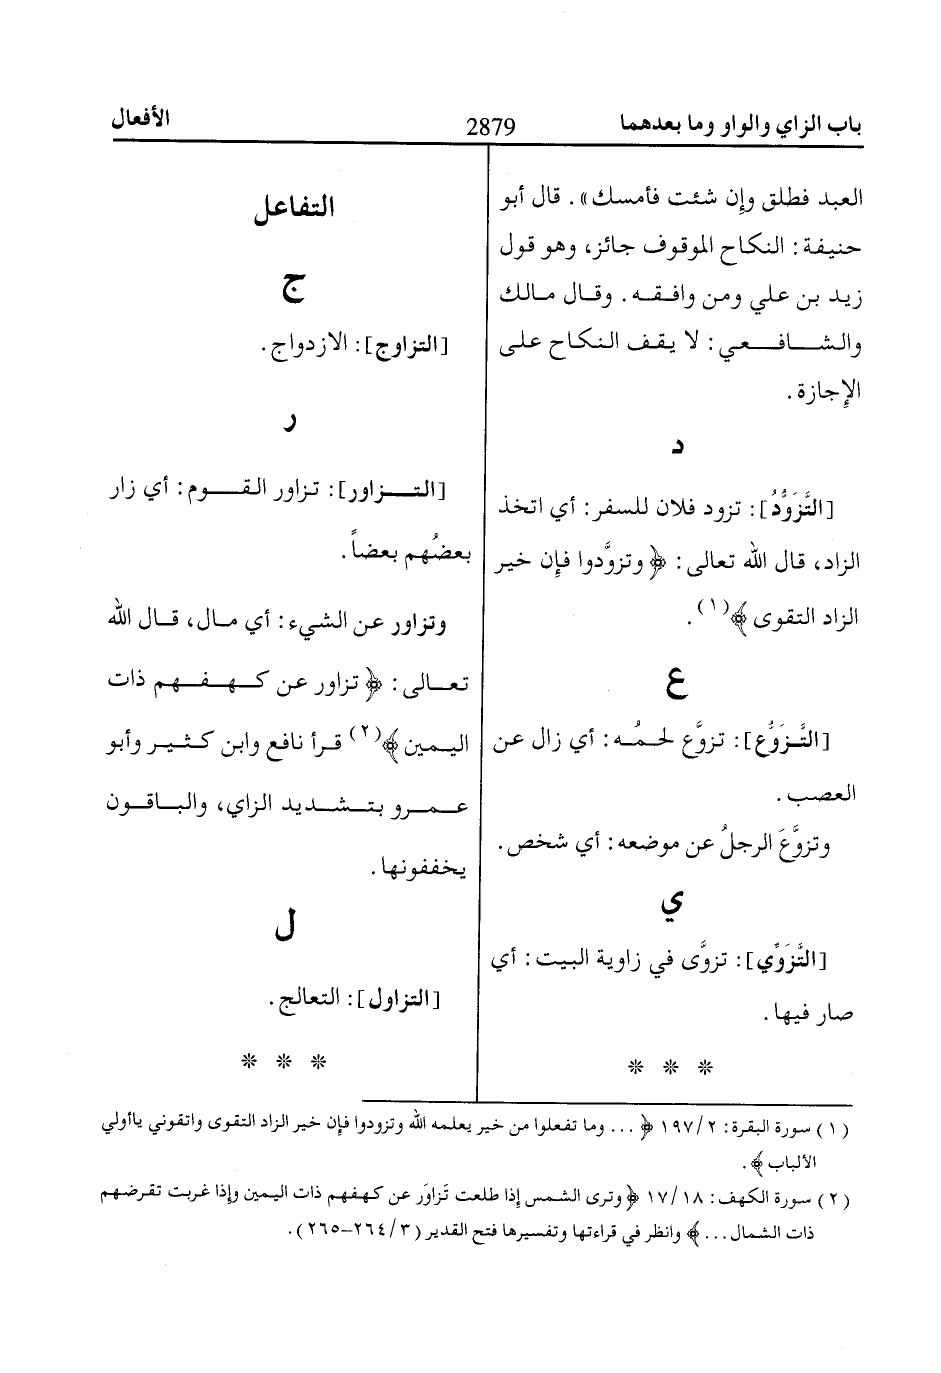 باب الزاي والواو وما بعدهما
2879
الأفعال
العبد فطلق وإن شئت فأمسك». قال أبو
حنيفة: النكاح الموقوف جائز، وهو قول
زيد بن علي ومن وافقه. وقال مالك
والشافعي: لا يقف النكاح على
الإجازة.
د
[التَّزَوُّدُ]: تزود فلان للسفر: أي اتخذ
الزاد، قال الله تعالى: ﴿وتزوَّدوا فإن خير
الزاد التقوى﴾(١).
ع
[التَّزَوُّع]: تزوَّع لحمُه: أي زال عن
العصب.
وتزوَّعَ الرجلُ عن موضعه: أي شخص.
ي
[التَّزَوِّي]: تزوَّى في زاوية البيت: أي
صار فيها.
* * *
التفاعل
ج
[التزاوج]: الازدواج.
ر
[التزاور]: تزاور القوم: أي زار
بعضُهم بعضاً.
وتزاور عن الشيء: أي مال، قال الله
تعالى: ﴿تزاور عن كهفهم ذات
اليمين﴾(٢) قرأ نافع وابن كثير وأبو
عمرو بتشديد الزاي، والباقون
يخففونها.
ل
[التزاول]: التعالج.
* * *
(١) سورة البقرة: ١٩٧/٢ ﴿... وما تفعلوا من خير يعلمه الله وتزودوا فإن خير الزاد التقوى واتقوني ياأولي
الألباب﴾.
(٢) سورة الكهف: ١٧/١٨ ﴿وترى الشمس إذا طلعت تَزاوَر عن كهفهم ذات اليمين وإذا غربت تقرضهم
ذات الشمال...﴾ وانظر في قراءتها وتفسيرها فتح القدير (٢٦٤/٣-٢٦٥).